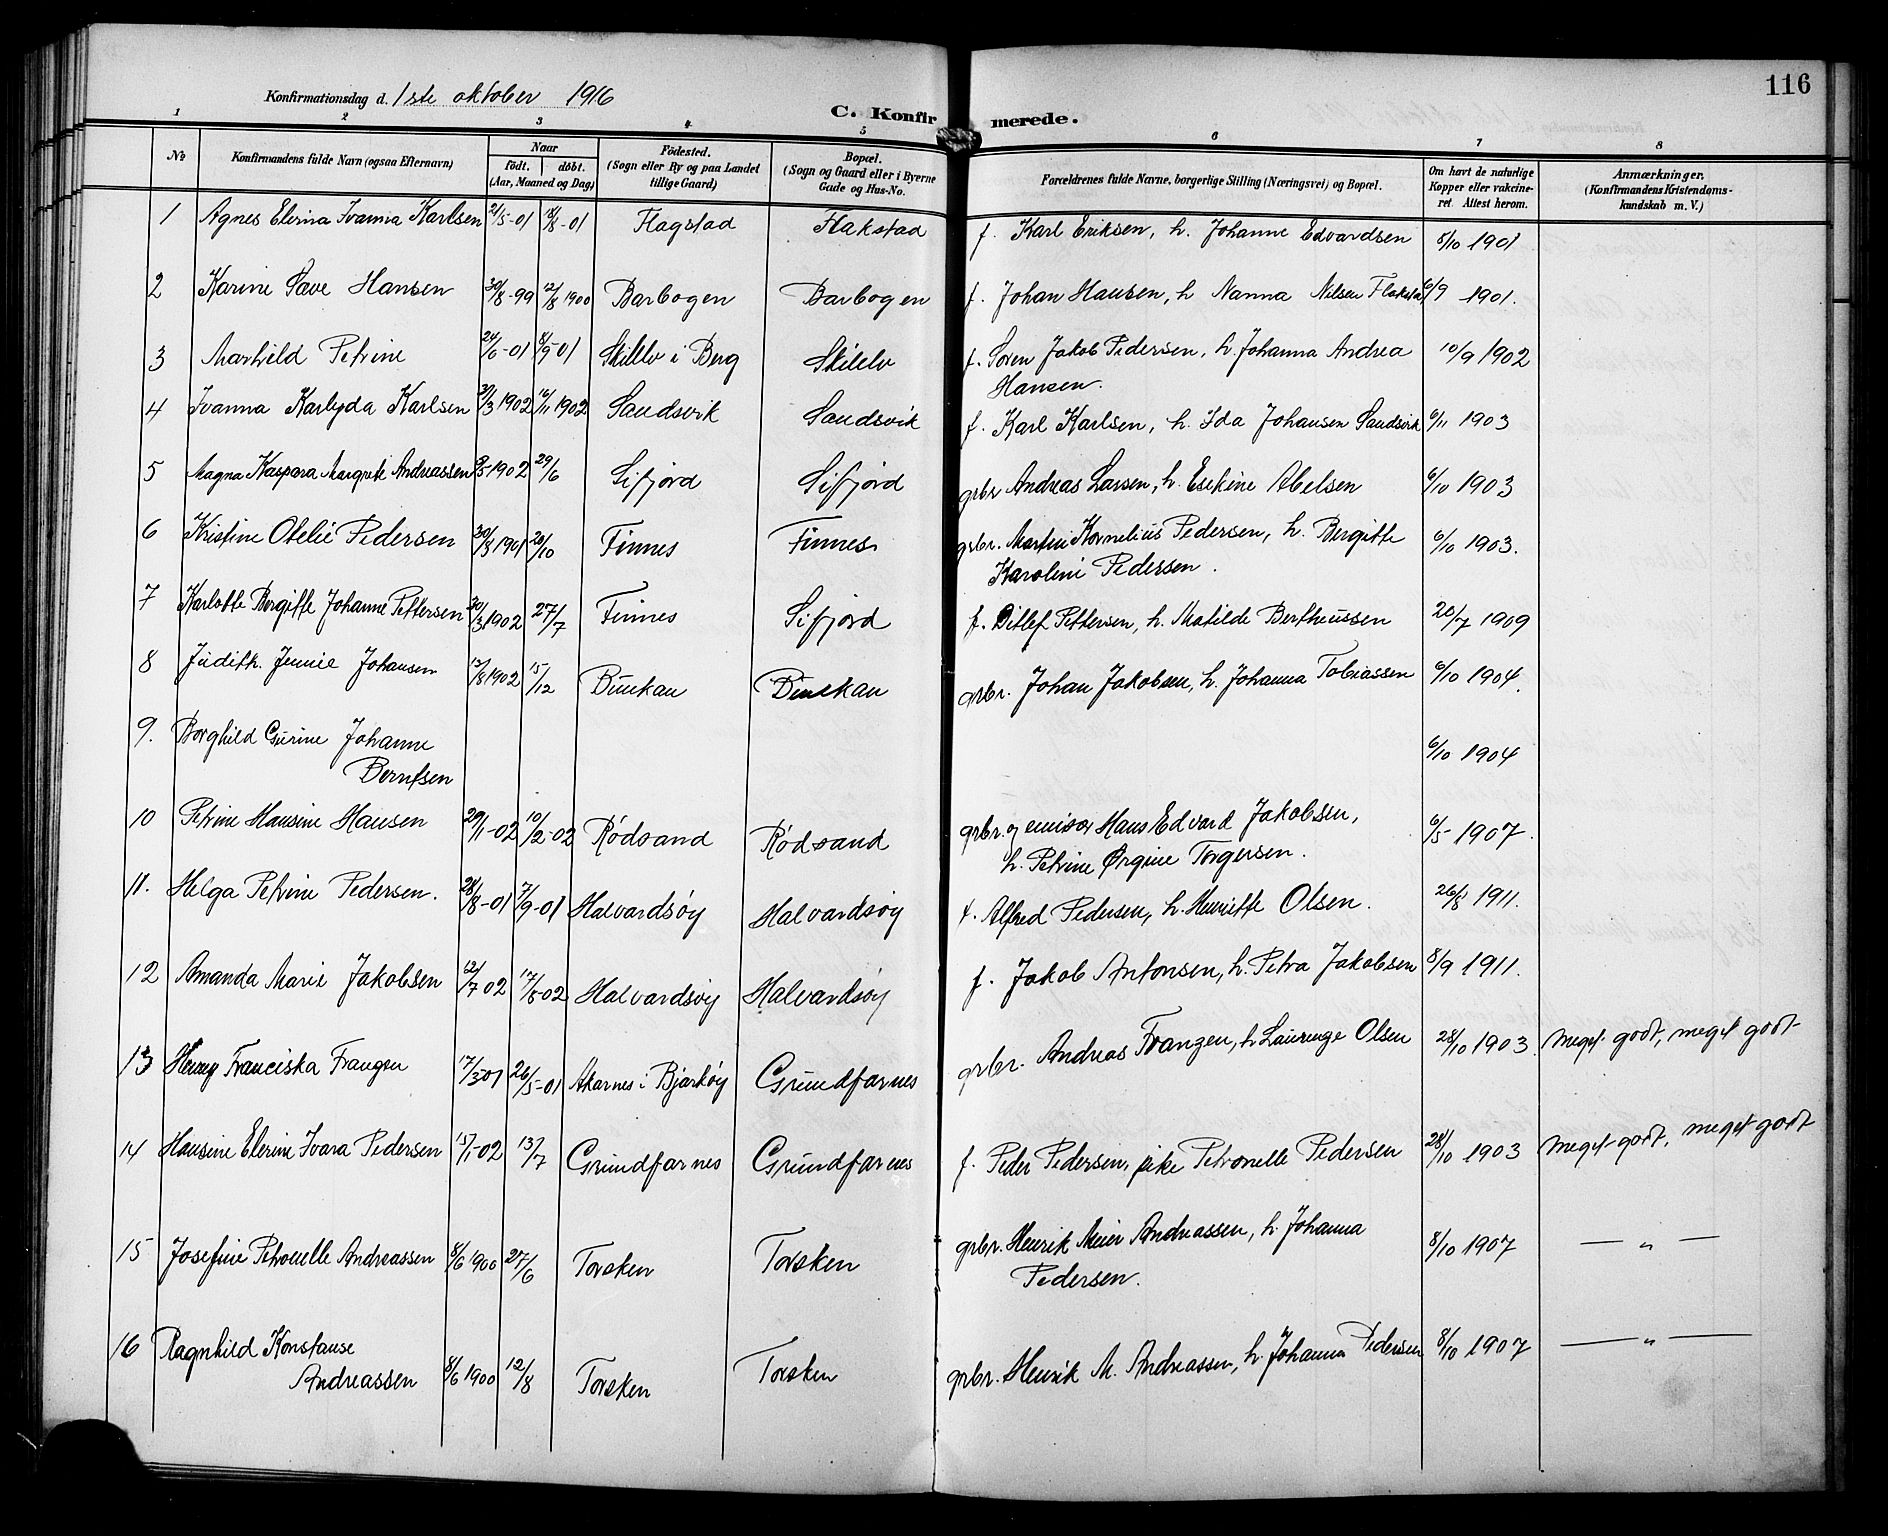 116
Konfirmationsdag d. 1ste oktober 1916
C. Konfirmerede.
1 2 3 4 5 6 7 8
No
Konfirmandens fulde Navn (ogsaa Efternavn)
Naar
født. døbt.
(Aar, Maaned og Dag)
Fødested.
(Sogn eller By og paa Landet
tillige Gaard)
Bopæl.
(Sogn og Gaard eller i Byerne
Gade og Hus-No.
Forældrenes fulde Navne, borgerlige Stilling (Næringsvei) og Bopæl.
Om havt de naturlige
Kopper eller vakcine-
ret. Attest herom.
Anmærkninger.
(Konfirmandens Kristendoms-
kundskab m. V.)
1 Agnes Elerina Ivanna Karlsen 21/5-01 18/8-01 Flagstad Flakstad f. Karl Eriksen, h. Johanne Edvardsen 8/10 1901
2 Karine Save Hansen 30/8-99 12/8 1900 Barbogen Barbogen f. Johan Hansen, h Nanna Nilsen Flakstad 6/9 1901.
3 Marhild Petrine 24/6-01 8/9-01 Skilelv i Berg Skilelv f. Søren Jakob Pedersen, h. Johanna Andrea 10/9 1902
Hansen.
4 Ivanna Karlyda Karlsen 30/3 1902 16/11 1902 Sandsvik Sandsvik f. Karl Karlsen, h. Ida Johansen Sandsvik 6/11 1903
5 Magna Kaspara Margrete Andreassen 1902 29/6 Sifjord Sifjord grbr Andreas Larsen, h. Esekine Abelsen 6/10 1903
6 Kristine Otelie Pedersen 30/8 1901 20/10 Finnes Finnes grbr. Martin Kornelius Pedersen, h. Bergitte 6/10 1903.
Karoline Pedersen.
7 Karlotte Bergitte Johanne Pettersen 30/3 1902 27/7 Finnes Sifjord f. Ditlef Pettersen, h. Matilde Bertheussen 20/7 1909
8 Judith Jennie Johansen 13/8 1902 15/12 Bunkan Bunkan grbr. Johan Jakobsen, h. Johanna Tobiassen 6/10 1904.
9. Borghild Gurine Johanne 6/10 1904
Berntsen
10 Petrine Hansine Hansen 29/1-02 10/2-02 Rødsand Rødsand grbr. og emisær Hans Edvard Jakobsen, 6/5 1907.
h. Petrine Ørgine Torgersen.
11. Helga Petrine Pedersen. 28/8-01 7/9-01 Halvardsøy Halvardsøy f. Alfred Pedersen, h. Henriette Olsen. 26/8 1911.
12 Amanda Marie Jakobsen 12/7 02 17/8-02 Halvardsøy Halvardsøy f. Jakob Antonsen, h. Petra Jakobsen 8/9 1911.
13 Henny Franciska Frangen 17/3 01 26/5-01 Akarnes i Bjarkøy Grundfarnes grbr. Andreas Franzen, h Laurenze Olsen 28/10 1903 Meget godt, meget godt
14 Hansine Elerine Ivara Pedersen 15/1-02 13/7 Grundfarnes Grundfarnes f. Peder Pedersen, pike Petronelle Pedersen 28/10 1903 Meget godt, meget godt
15 Josefine Petronelle Andreassen 8/6 1900 27/6 Torsken Torsken grbr. Henrik Meier Andreassen, h. Johanna 8/10 1907 — " —
Pedersen.
16 Ragnhild Konstanse
Andreassen 8/6 1900 12/8 Torsken Torsken grbr. Henrik M. Andreassen, h. Johanna Pedersen 8/10 1907 — " —